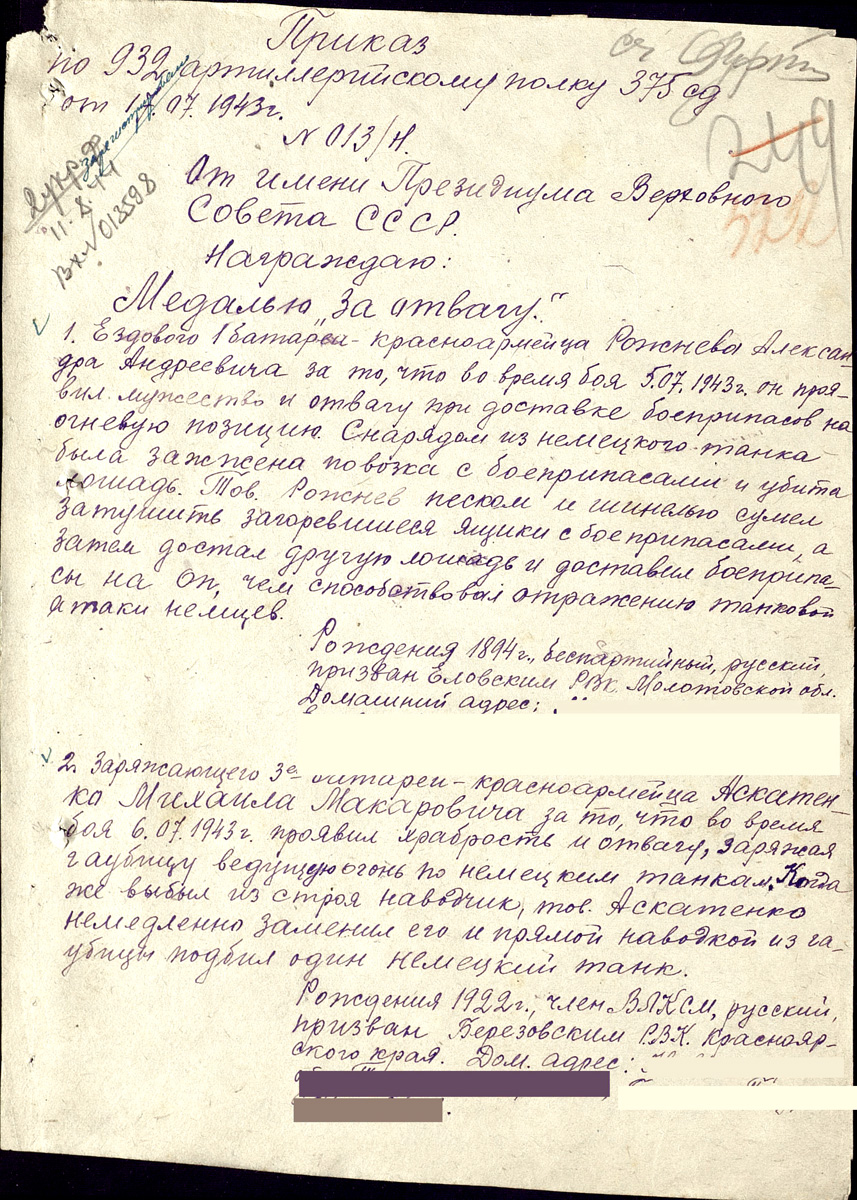 Приказ
по 932 артиллерийскому полку 375 сд
от 07.1943г.
N 013/н.
249
11.8.44
Вх N 013598
От имени Президиума Верховного
Совета СССР.
Награждаю:
Медалью „За отвагу."
1. Ездового 1 батареи - красноармейца Рожнева Алексан-
дра Андреевича за то, что во время боя 5.07.1943г. он проя-
вил мужество и отвагу при доставке боеприпасов на
огневую позицию. Снарядом из немецкого танка
была зажжена повозка с боеприпасами и убита
лошадь. Тов. Рожнев песком и шинелью сумел
затушить загоревшиеся ящики с боеприпасами, а
затем достал другую лошадь и доставил боеприпа-
сы на оп, чем способствовал отражению танковой
атаки немцев.
Рождения 1894г., беспартийный, русский,
призван Еловским РВК Молотовской обл.
Домашний адрес:
2. Заряжающего 3ей батареи - красноармейца Аскатен-
ко Михаила Макаровича за то, что во время
боя 6.07.1943г. проявил храбрость и отвагу, заряжая
гаубицу ведущую огонь по немецким танкам. Когда
же выбыл из строя наводчик, тов. Аскатенко
немедленно заменил его и прямой наводкой из га-
убицы подбил один немецкий танк.
Рождения 1922г., член ВЛКСМ, русский,
призван Березовским РВК Краснояр-
ского края. Дом. адрес: